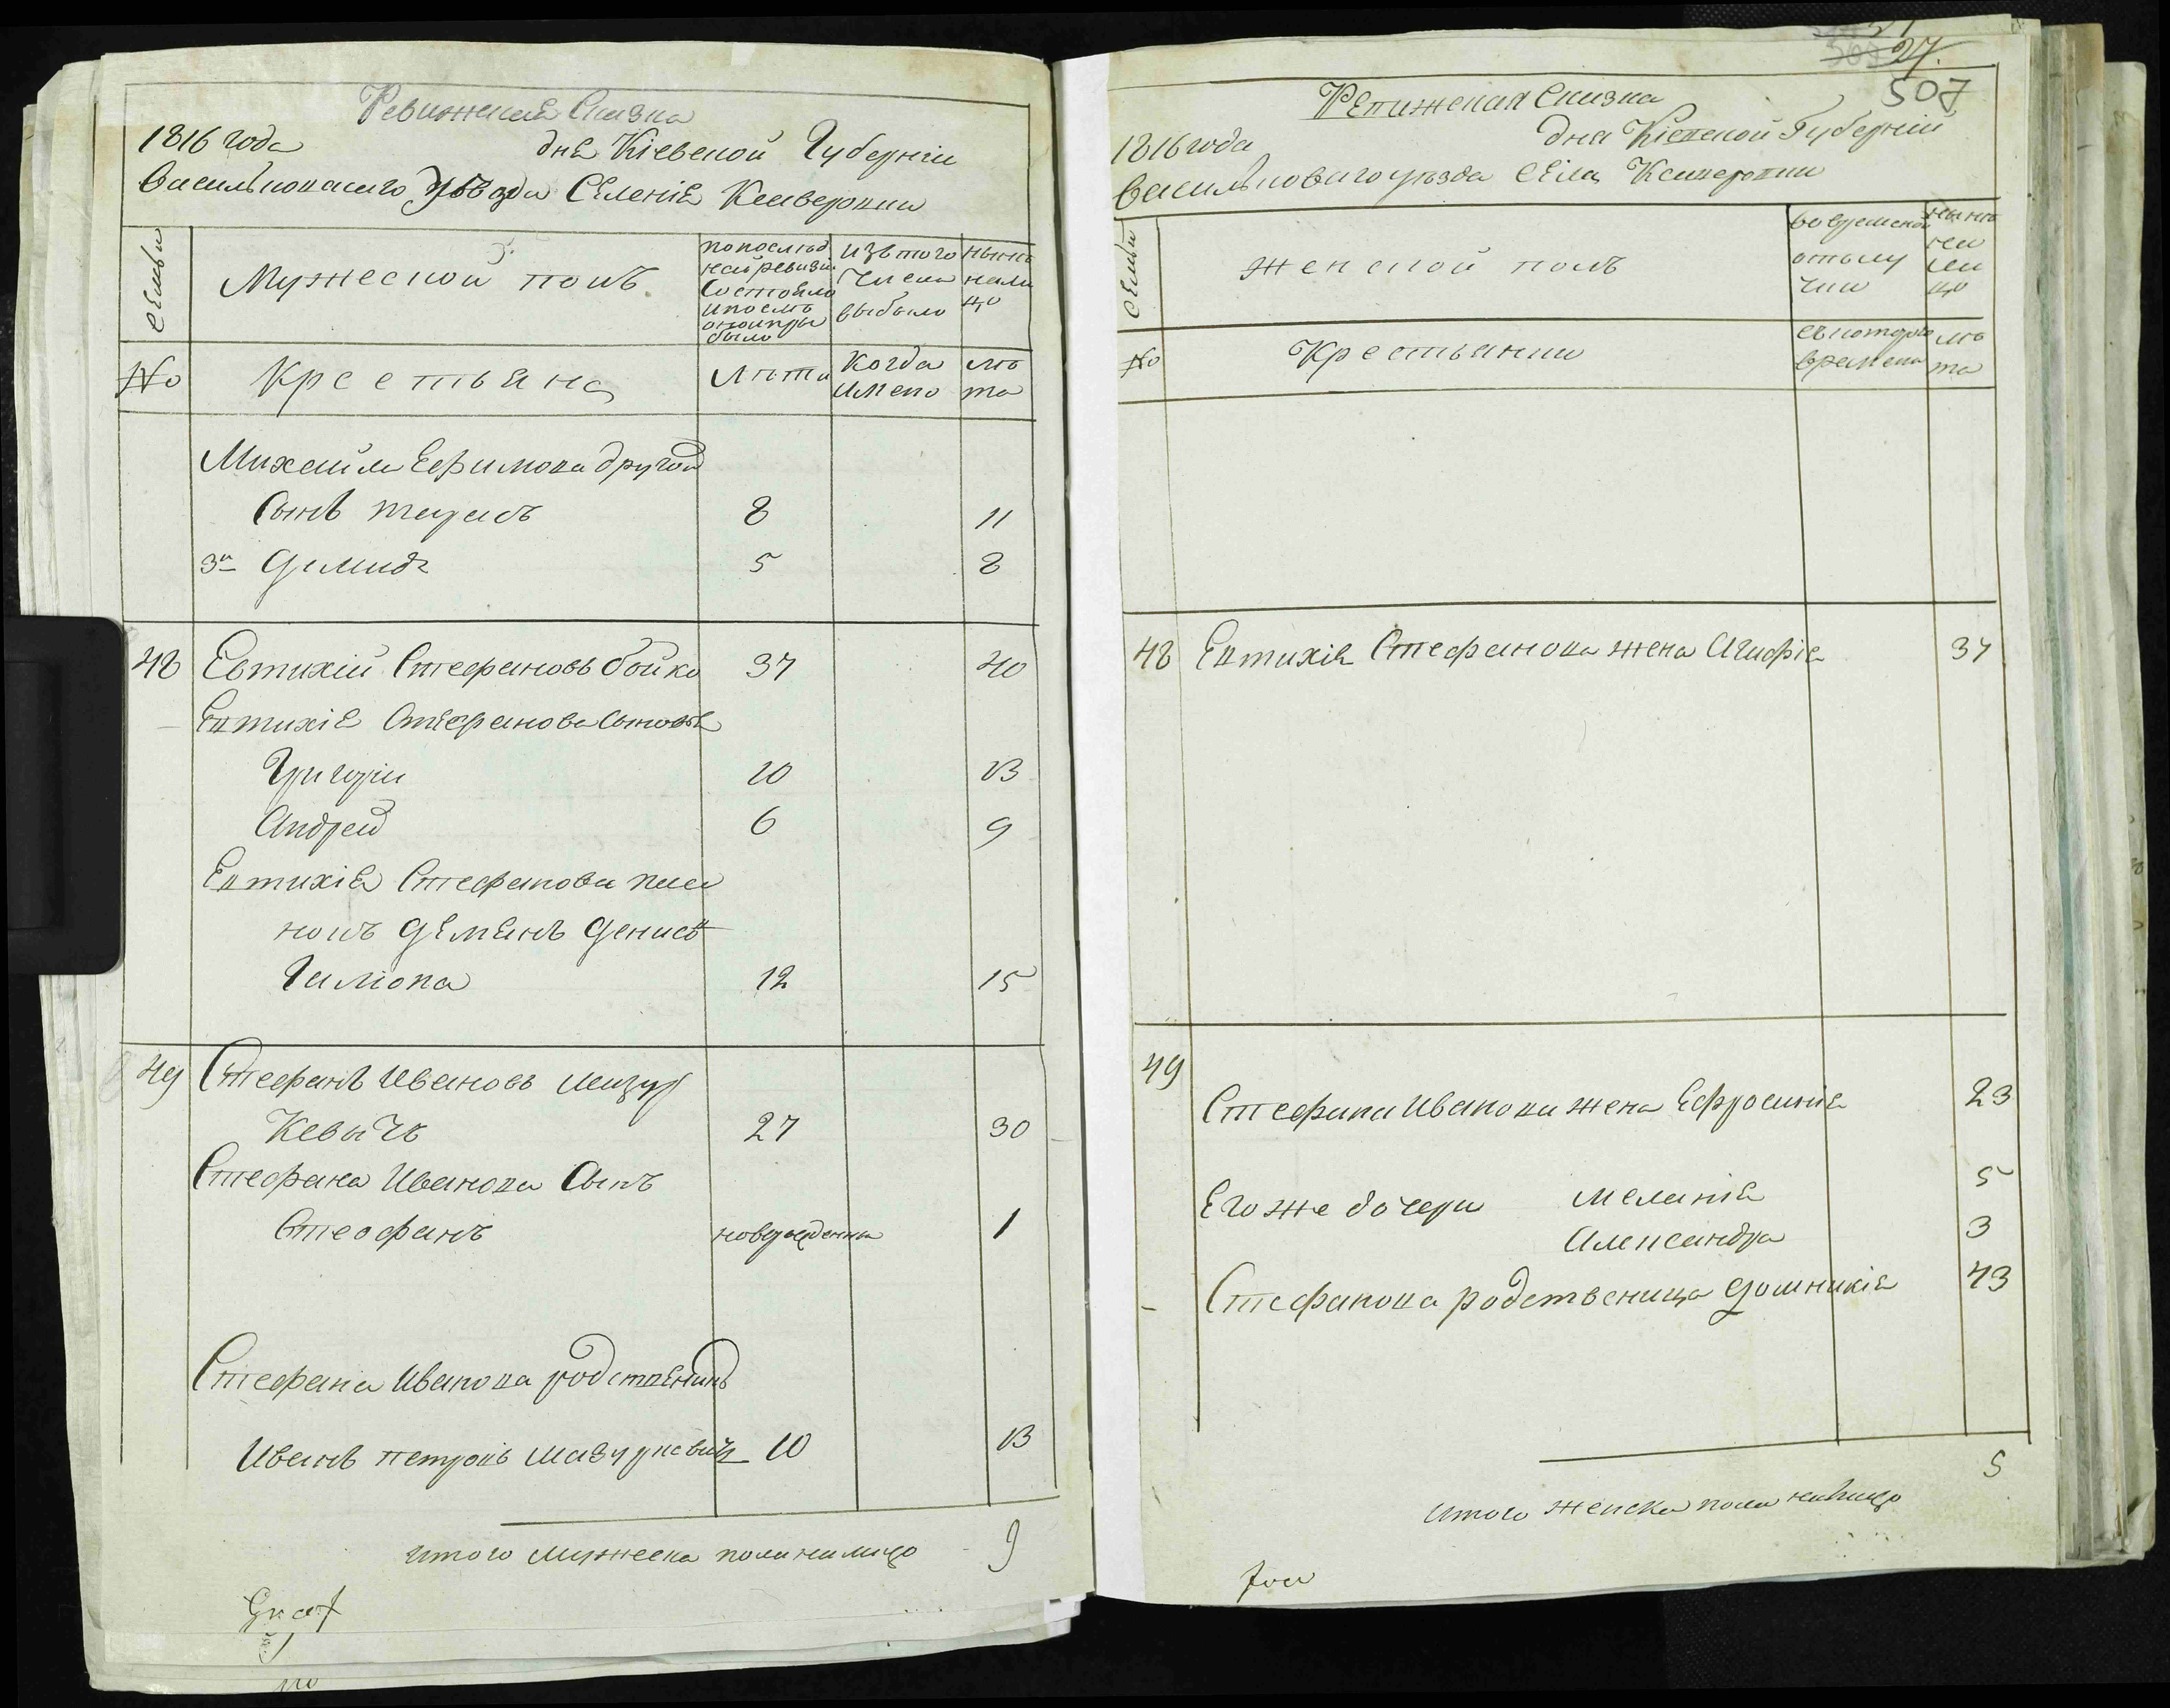 Ревижская Сказка
1816 года дня Кіевской Губерніи
Васильковскаго уѣзда Селенія Ксаверовки
Семьи
Мужеской полъ
по послѣд
ней ревизіи
состояло
и послѣ
оной при
было
изъ того
числа
выбыло
нынѣ
нали
цо
№
Крестьяне
Лѣта
когда
имено
лѣ
та
Михайла Ефимова другой
Сынъ Тарасъ 8 11
3й Демидъ 5 8
48 Евтихій Стефановъ Бойко 37 40
Евтихія Стефанова Сыновья
Григорій 10 13
Андрей 6 9
Евтихія Стефанова пасы
нокъ Деменъ Денисов
12 15
49 Стефанъ Ивановъ Мазур
Кевычъ 27 30
Стефана Иванова Сынъ
Стефанъ новорожденны 1
Стефана Иванова родственикъ
Иванъ Петровъ Мазуркевичъ 10 13
Итого мужеска пола налицо 9
27.
507
Ревижская Сказка
1816 года дня Кіевской Губерніи
Васильковскаго уѣзда Села Ксаверовки
Семьи
Женской полъ
во временной
отлу
чки
нынѣ
на
ли
цо
№
Крестьянки
съ котораго
времени
лѣ
та
48 Евтихія Стефанова жена Агафія 37
49
Стефана Иванова жена Ефросинія 23
Его же дочери Меланія 5
Александра 3
Стефанова родственица Домникія 43
Итого женска пола налицо 5